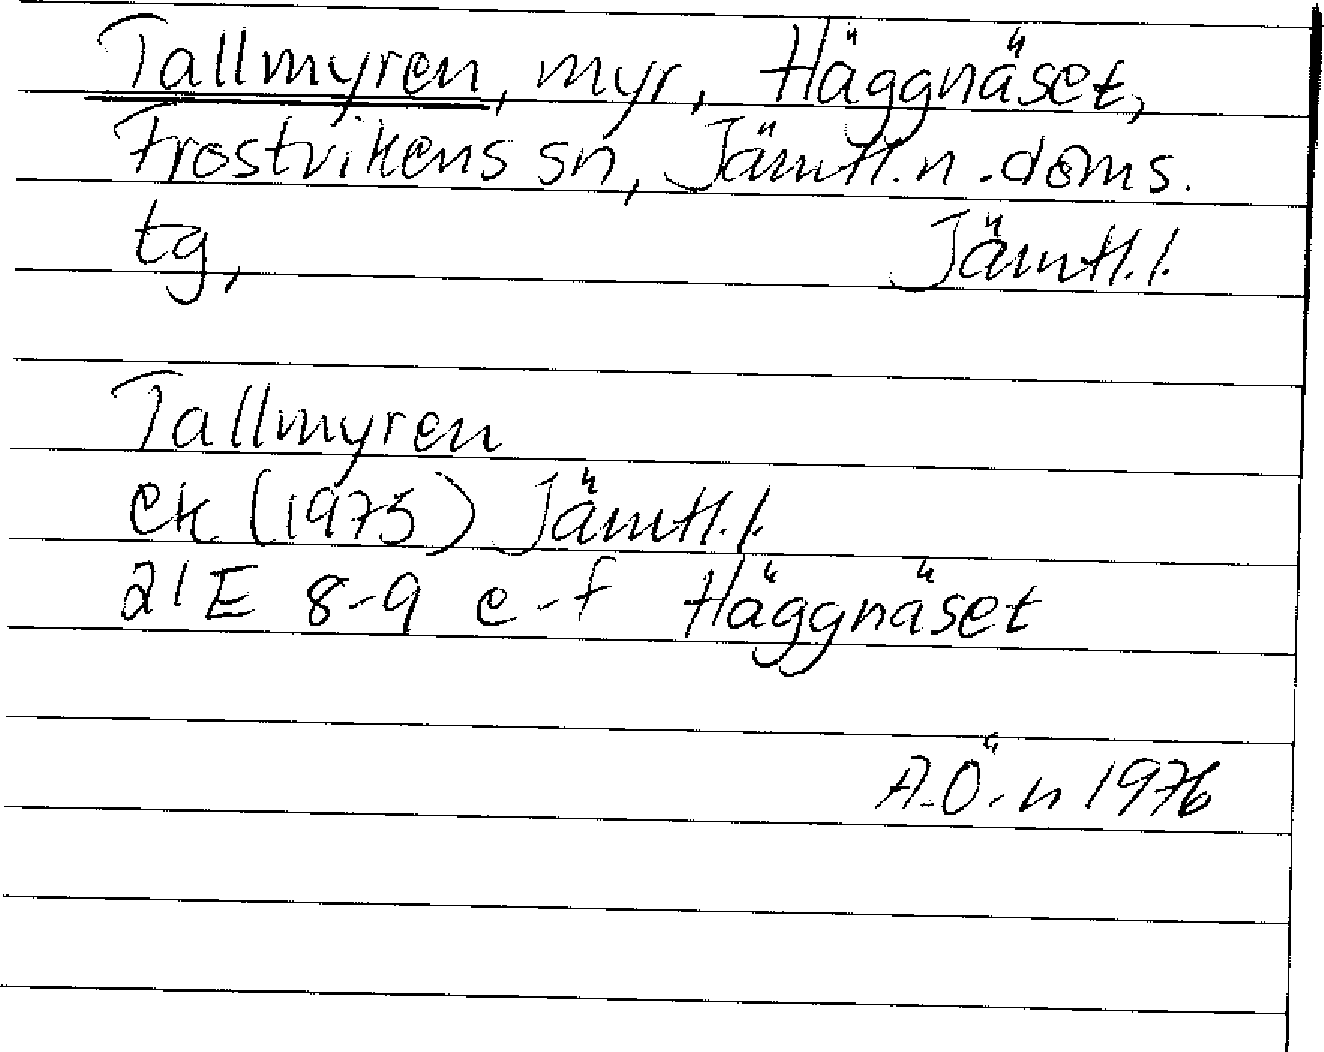 Tallmyren, myr, Häggnäset,
Frostvikens sn, Jämtl.n.doms.
tg, Jämtl.l.
Tallmyren
ek (1975) Jämtl.l.
21E 8-9 e-f Häggnäset
A-Ö-n 1976